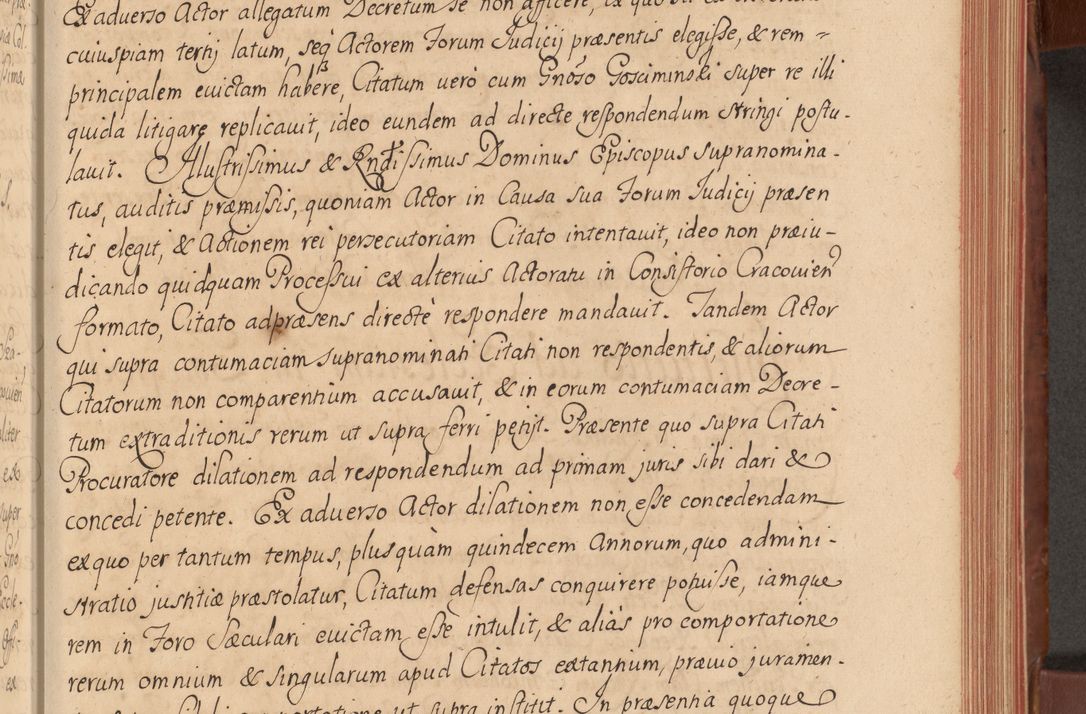 Ex adverso Actor allegatum Decretum se non afficere, ex quo sit ex
cuiuspiam tertij latum, seq Actorem Forum Iudicij præsentis elegisse, & rem
principalem euictam habere, Citatum uero cum Gnoso Gosciminski super re illi
quida litigare replicauit, ideo eundem ad directe respondendum stringi postu-
lauit. Illustrissimus & Rndissimus Dominus Episcopus supranomina-
tus, auditis præmissis, quoniam Actor in Causa sua Forum Iudicij præsen
tis elegit, & Actionem rei persecutoriam Citato intentauit, ideo non præiu-
dicando quidquam Processui ex alterius Actoratu in Consistorio Cracouien
formato, Citato adpræsens directè respondere mandauit. Tandem Actor
qui supra contumaciam supranominati Citati non respondentis, & aliorum
Citatorum non comparentium accusauit, & in eorum contumaciam Decre-
tum extraditionis rerum ut supra ferri petijt. Præsente quo supra Citati
Procuratore dilationem ad respondendum ad primam juris sibi dari &
concedi petente. Ex aduerso Actor dilationem non esse concedendam
ex quo per tantum tempus, plusquàm quindecem Annorum, quo admini-
stratio justitiæ præstolatur, Citatum defensas conquirere potuisse, iamque
rem in Foro Sæculari euictam esse intulit, & aliàs pro comportatione
rerum omnium & singularum apud Citatos extantium, præuio juramen-
ut supra institit. In præsentia quoque